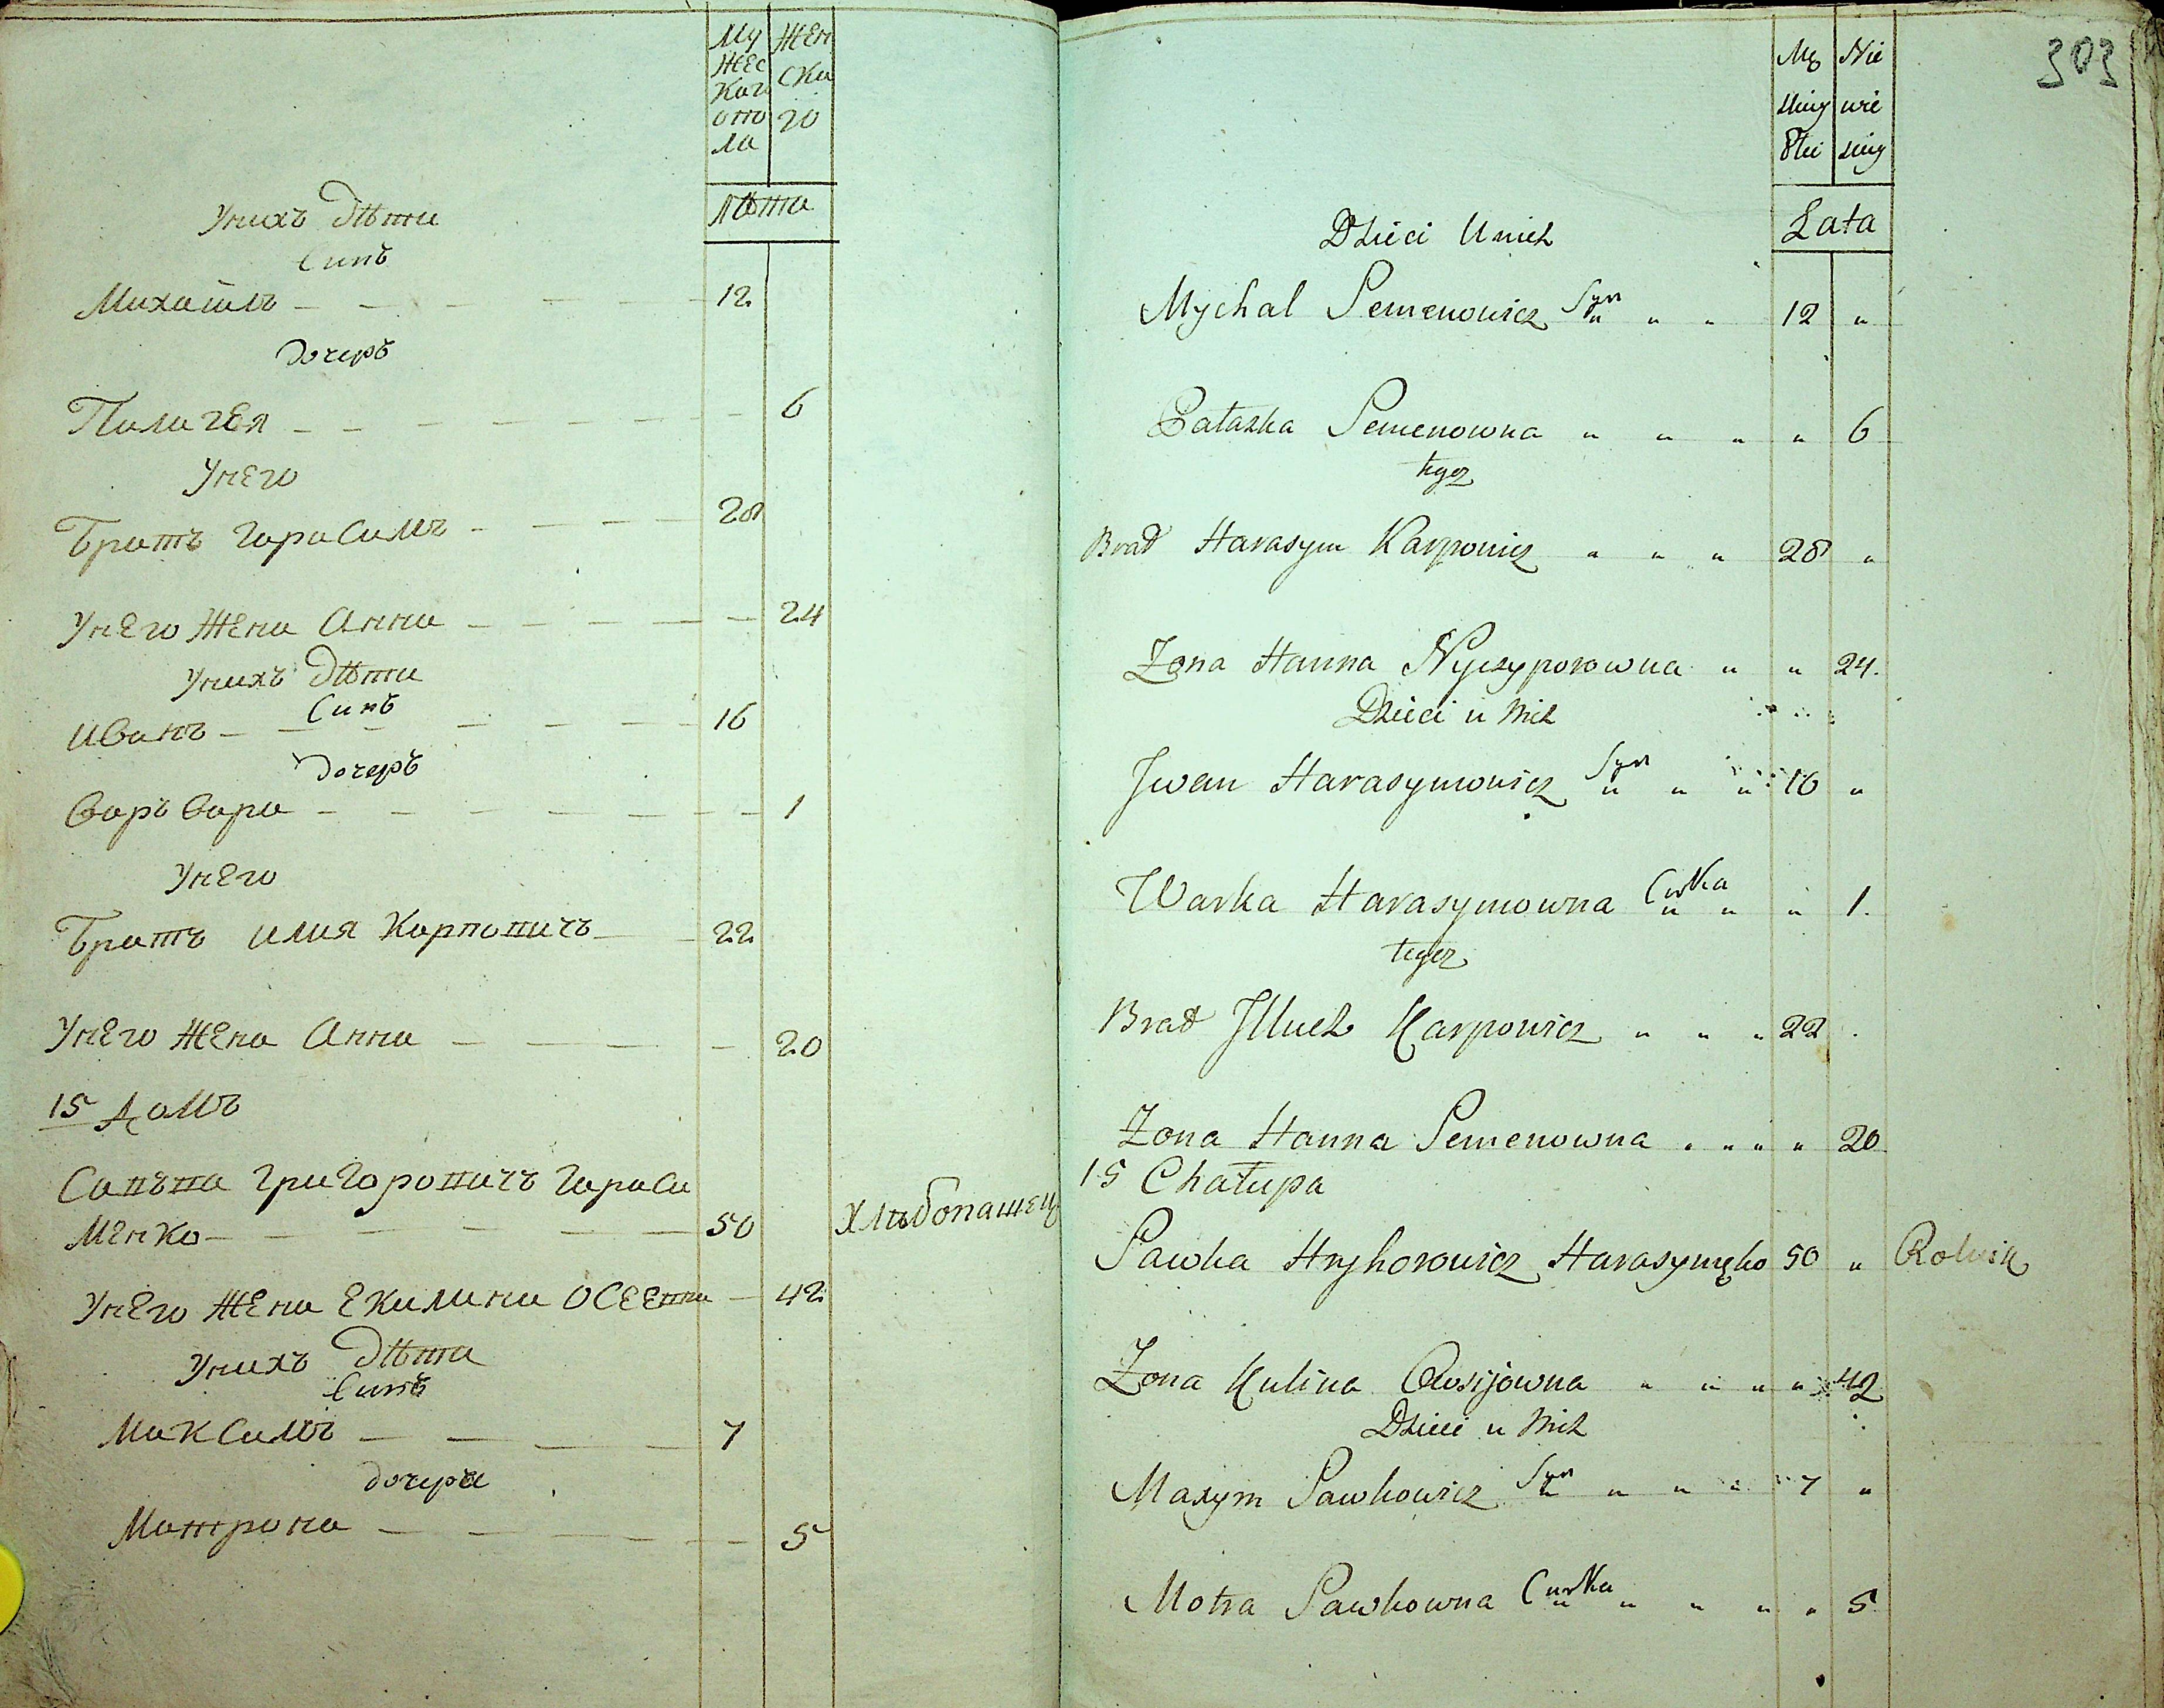 Му жес каг опо ла
жен ска го
лѣта
Унихъ дѣти
Синъ
Михайлъ 12
дочеръ
Палагея 6
Унего
Братъ Гарасимъ 28
Унего жена Анна 24
Унихъ дѣти
Синъ
Иванъ 16
дочеръ
Варъвара 1
Унего
Братъ Илия Карповичъ 22
Унего жена Анна 20
15 Домъ
Савъка Григоровичъ Гараси
менко 50 хлѣбопашец
Унего жена Екилина Осеевна 42
Унихъ дѣти
Синъ
Максимъ 7
дочеръ
Матрона 5
303
Mę sking Płci
Nie wie sking
Lata
Dzieci Unich
Mychal Semenowicz Syn 12
Pałazka Semenowna 6
tegoz
Brat Harasym Karpowicz 28
Zona Hanna Nyczyporowna 24.
Dzieci u Nich
Jwan Harasymowicz Syn 16
Warka Harasymowna Curka 1.
tegoz
Brat Jlluch Karpowicz 22
Zona Hanna Semenowna 20
15 Chałupa
Sawka Hryhorowicz Harasymęko 50 Rolnik
Zona Kulina Owsijowna 42
Dzieci u Nich
Maxym Sawkowicz Syn 7
Motra Sawkowna Curka 5